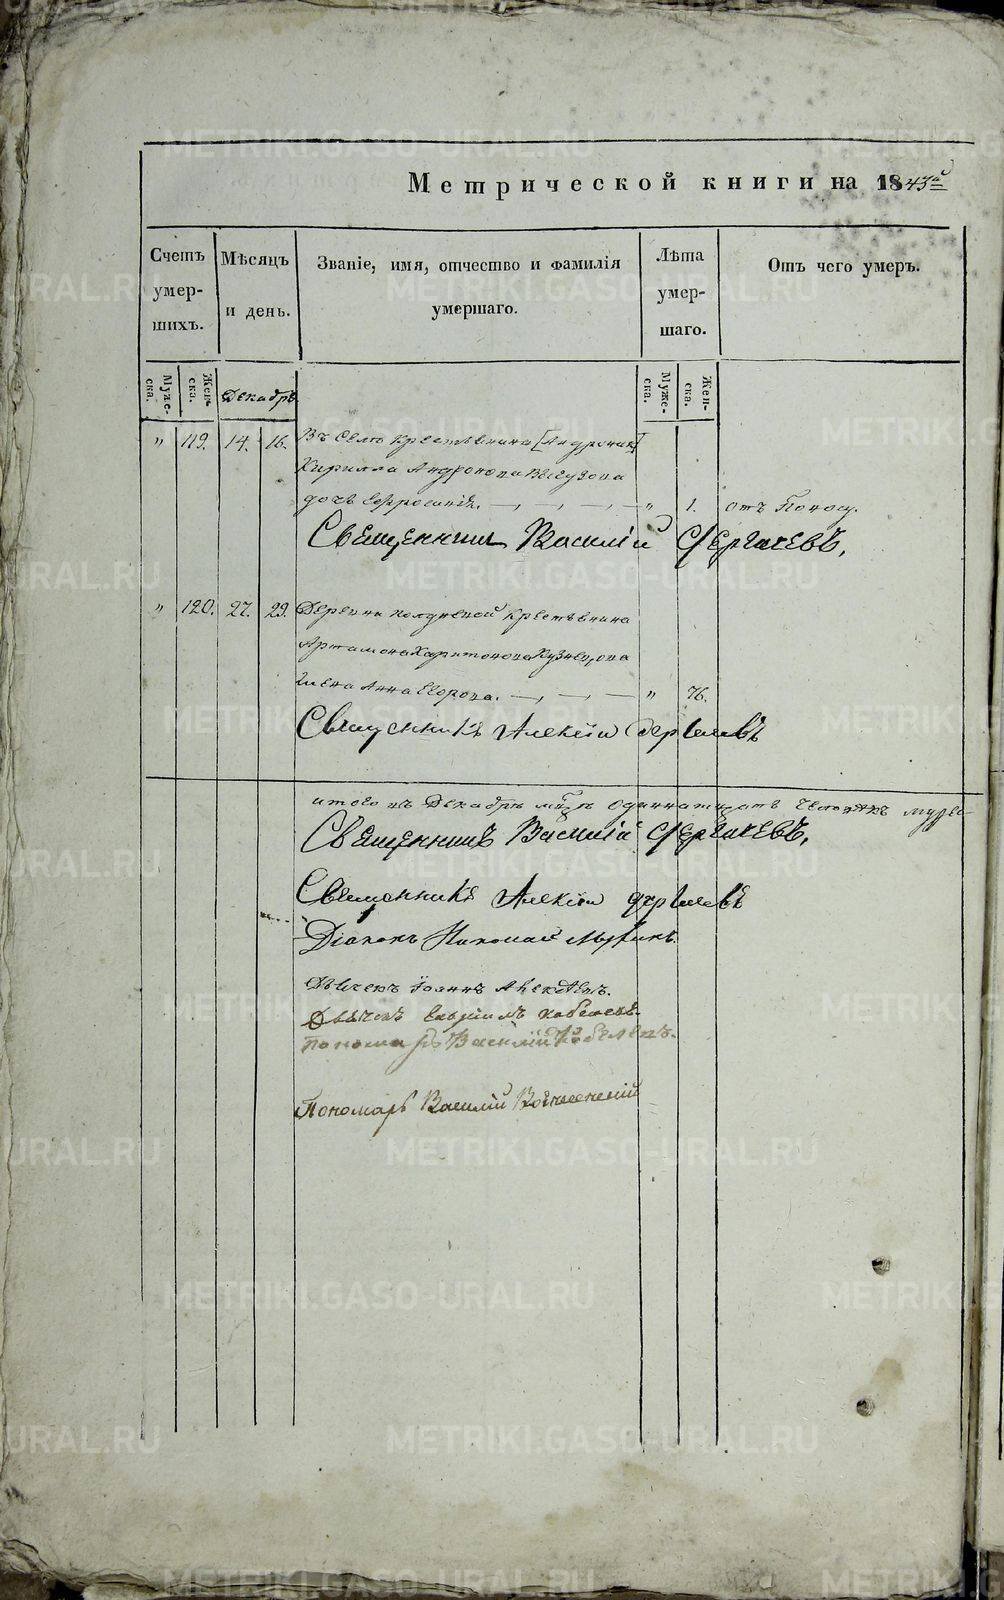 Метрической книги на 1843й
Счетъ умершихъ.
Мѣсяцъ и день.
Званіе, имя, отчество и фамилія умершаго.
Лѣта умершаго.
Отъ чего умеръ.
Мужеска.
Женска.
Декабрь
Мужеска.
Женска.
" 119. 14. 16. Въ Селѣ крестьянина
Кирилла Андронова
дочь Евфросинія. " 1. отъ Поносу.
Священникъ Василій Сергачевъ.
" 120. 27. 29. Деревни Полдневой крестьянина
Артамона Харитонова Кузнецова
жена Анна Егорова. " 76.
Священникъ Алексій Сергачевъ
итого въ Декабрѣ мцѣ одиннатцать человѣкъ
Священникъ Василій Сергачевъ,
Священникъ Алексій Сергачевъ
Діаконъ Николай
Дьячекъ Іоаннъ
Дьячекъ
Пономарь Василій
Пономарь Василій Вознесенскій
METRIKI.GASO-URAL.RU